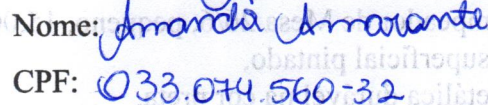 Nome: Amanda Amarante
CPF: 033.074.560-32